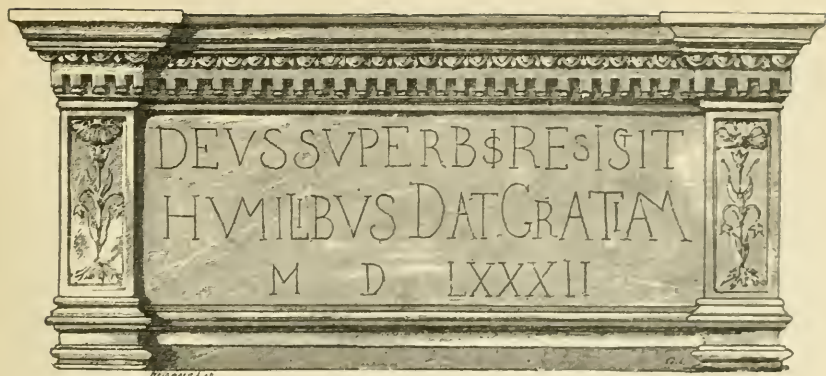 DEVS SVPERB$ RESISTIT
HVMILIBVS DAT GRATIAM
M D LXXXII